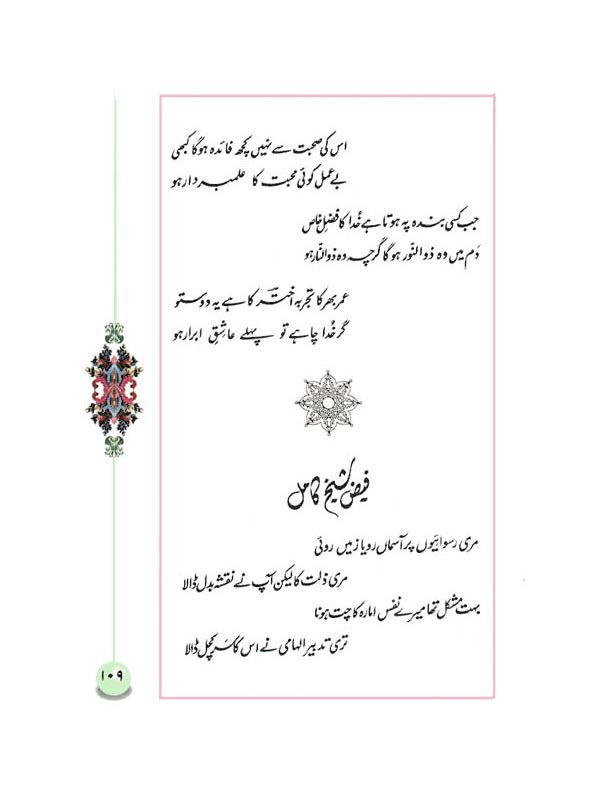 اس کی صحبت سے نہیں کچھ فائدہ ہوگا کبھی
بے عمل کوئی محبت کا علمبردار ہو
جب کسی بندہ پہ ہوتا ہے خُدا کا فضلِ خاص
دَم میں وہ ذوالنّور ہوگا گرچہ وہ ذوالنّار ہو
عمر بھر کا تجربہ اخترؔ کا ہے یہ دوستو
گر خُدا چاہے تو پہلے عاشقِ ابرار ہو
فیضِ شیخِ کامل
مری رسوائیوں پر آسماں رویا زمیں روئی
مری ذلت کا لیکن آپ نے نقشہ بدل ڈالا
بہت مشکل تھا میرے نفس امارہ کا چت ہونا
تری تدبیر الہامی نے اس کا سَر کچل ڈالا
۱۰۹